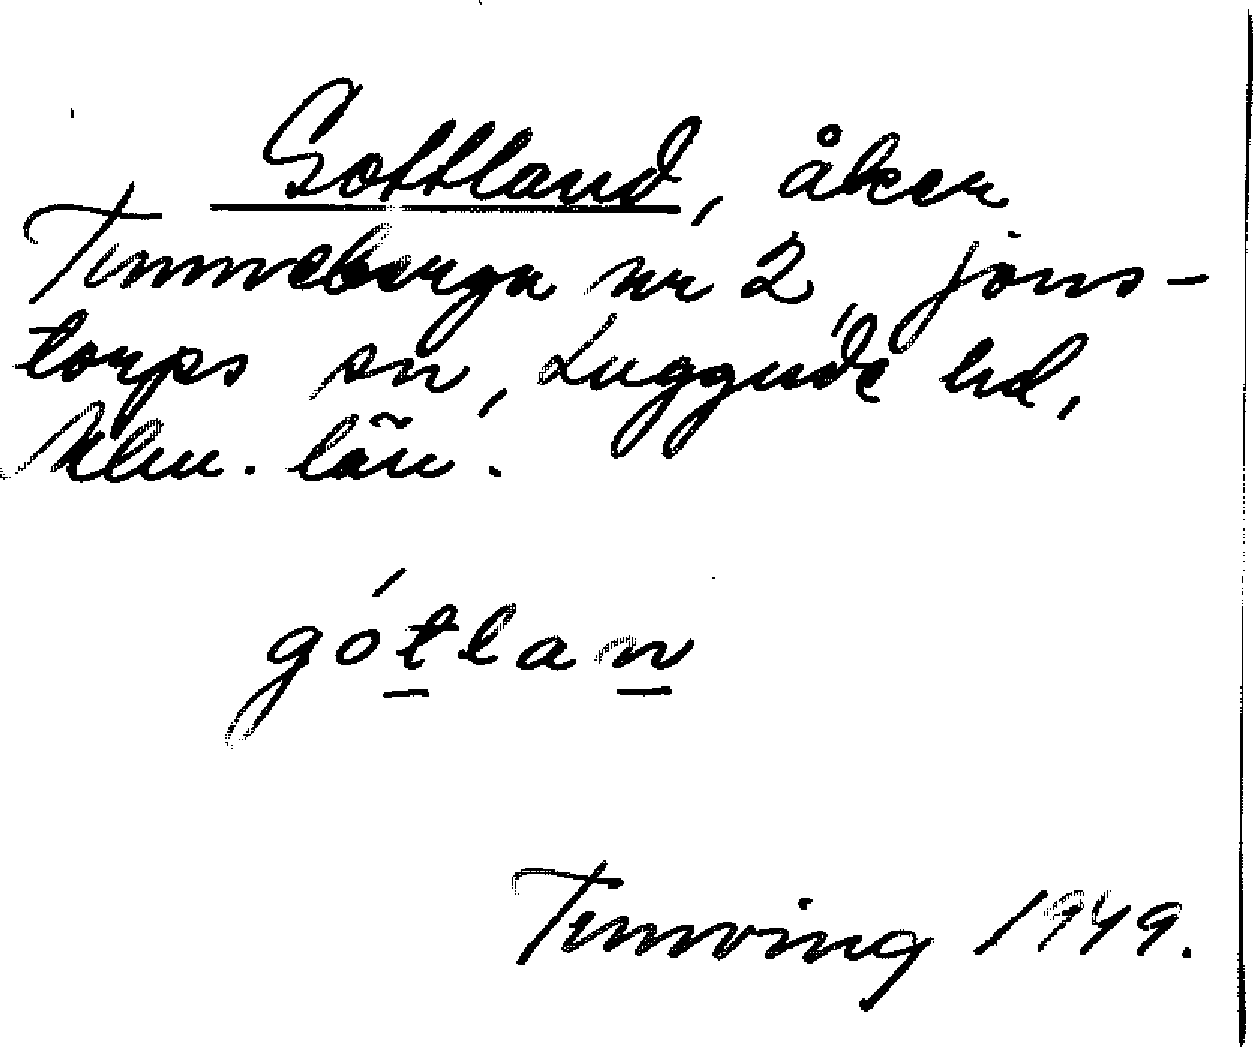 Gottland, åker
Timmeberga nr 2, Jons-
torps sn, Luggude hd,
Klm. län.
gótlan
1949.